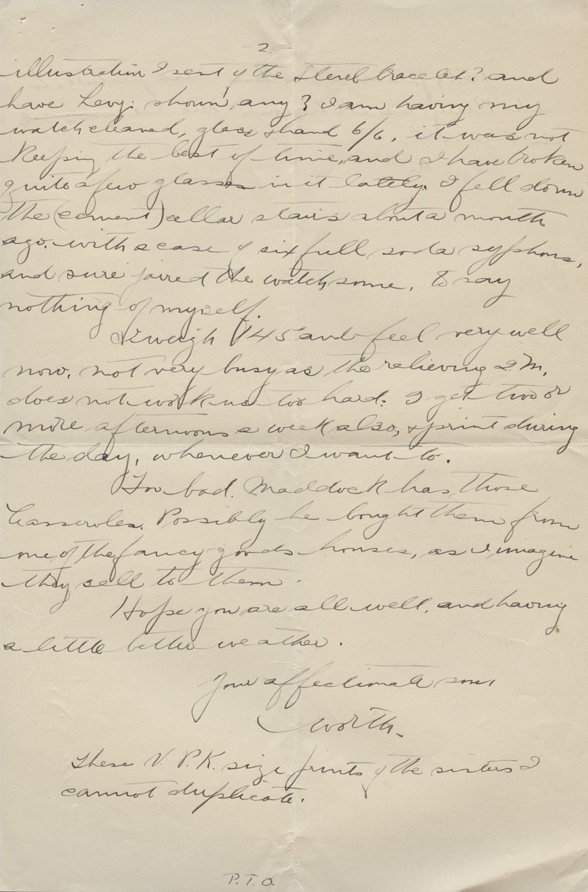 2
illustration I sent of the steel bracelet? and
have Levy: shown any? I am having my
watch cleaned, glass & hand 6/6. it was not
Keeping the best of time, and I have broken
quite a few glasses in it lately. I fell down
the (cement) cellar stairs about a month
ago. with a case of six full soda syphons.
and sure jarred the watch some, to say
nothing of myself.
I weigh 145 and feel very well
now. not very busy as the relieving 2 M.
does not work us too hard. I get two or
more afternoons a week also, & print during
the day, whenever I want to.
Too bad. Maddock has those
Casseroles. Possibly he bought them from
one of the fancy goods houses, as I imagine
they sell to them.
Hope you are all well, and having
a little better weather.
Your affectionate son
Worth.
These V.P.K. size prints of the sisters I
cannot duplicate.
P.T.O.